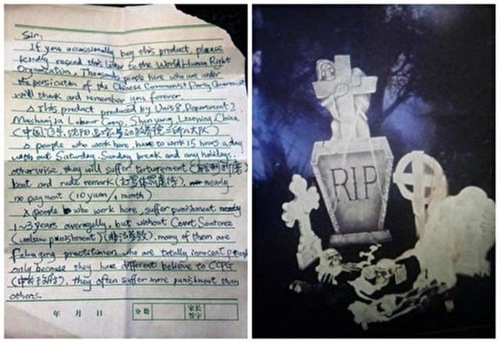 Sir:
If you occassionally buy this product, please
kindly resend this letter to the World Human Right
Organization. Thousands people here who are under
the persicution of the Chinese Communist Party Government
will thank and remember you forever.
This product produced by Unit 8, Department 2,
Mashanjia Labour Camp, Shen Yang, Liaoning, China
(中国,辽宁,沈阳,马三家
people who work here, have to work 15 hours a day
without Saturday, Sunday break and any holidays,
otherwise, they will suffer torturement
beat and rude remark nearly
no payment (10 yuan / month)
people who work here, suffer punishment nearly
1~3 years averagelly, but without Court Sentence
(unlaw punishment) many of them are
Falun gong practitioner, who are totally innocent people
only because they have different believe to CCPG
they often suffer more punishment than
others.
年 月 日
分数
家长
签字
RIP